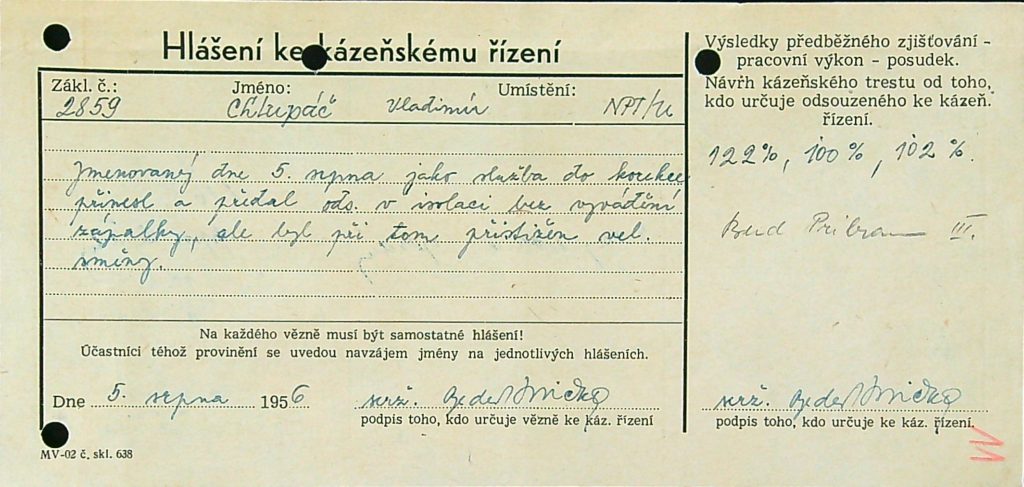 Hlášení ke kázeňskému řízení
Zákl. č.: Jméno: Umístění:
2859 Chlupáč Vladimír NPT/U
Jmenovaný dne 5. srpna jako služba do korekce
přinesl a předal ods. v isolaci bez vyvádění
zápalky, ale byl při tom přistižen vel.
směny.
Na každého vězně musí být samostatné hlášení!
Účastníci téhož provinění se uvedou navzájem jmény na jednotlivých hlášeních.
Dne 5. srpna 1956 serž.
podpis toho, kdo určuje vězně ke káz. řízení
MV-02 č. skl. 638
Výsledky předběžného zjišťování -
pracovní výkon - posudek.
Návrh kázeňského trestu od toho,
kdo určuje odsouzeného ke kázeň.
řízení.
122%, 100%, 102%.
III.
serž.
podpis toho, kdo určuje ke káz. řízení.